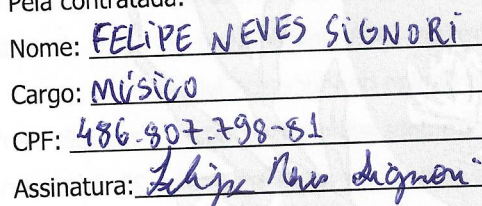 Pela contratada:
Nome: FELIPE NEVES SIGNORI
Cargo: MÚSICO
CPF: 486.807.798-81
Assinatura: Felipe Neves Signori